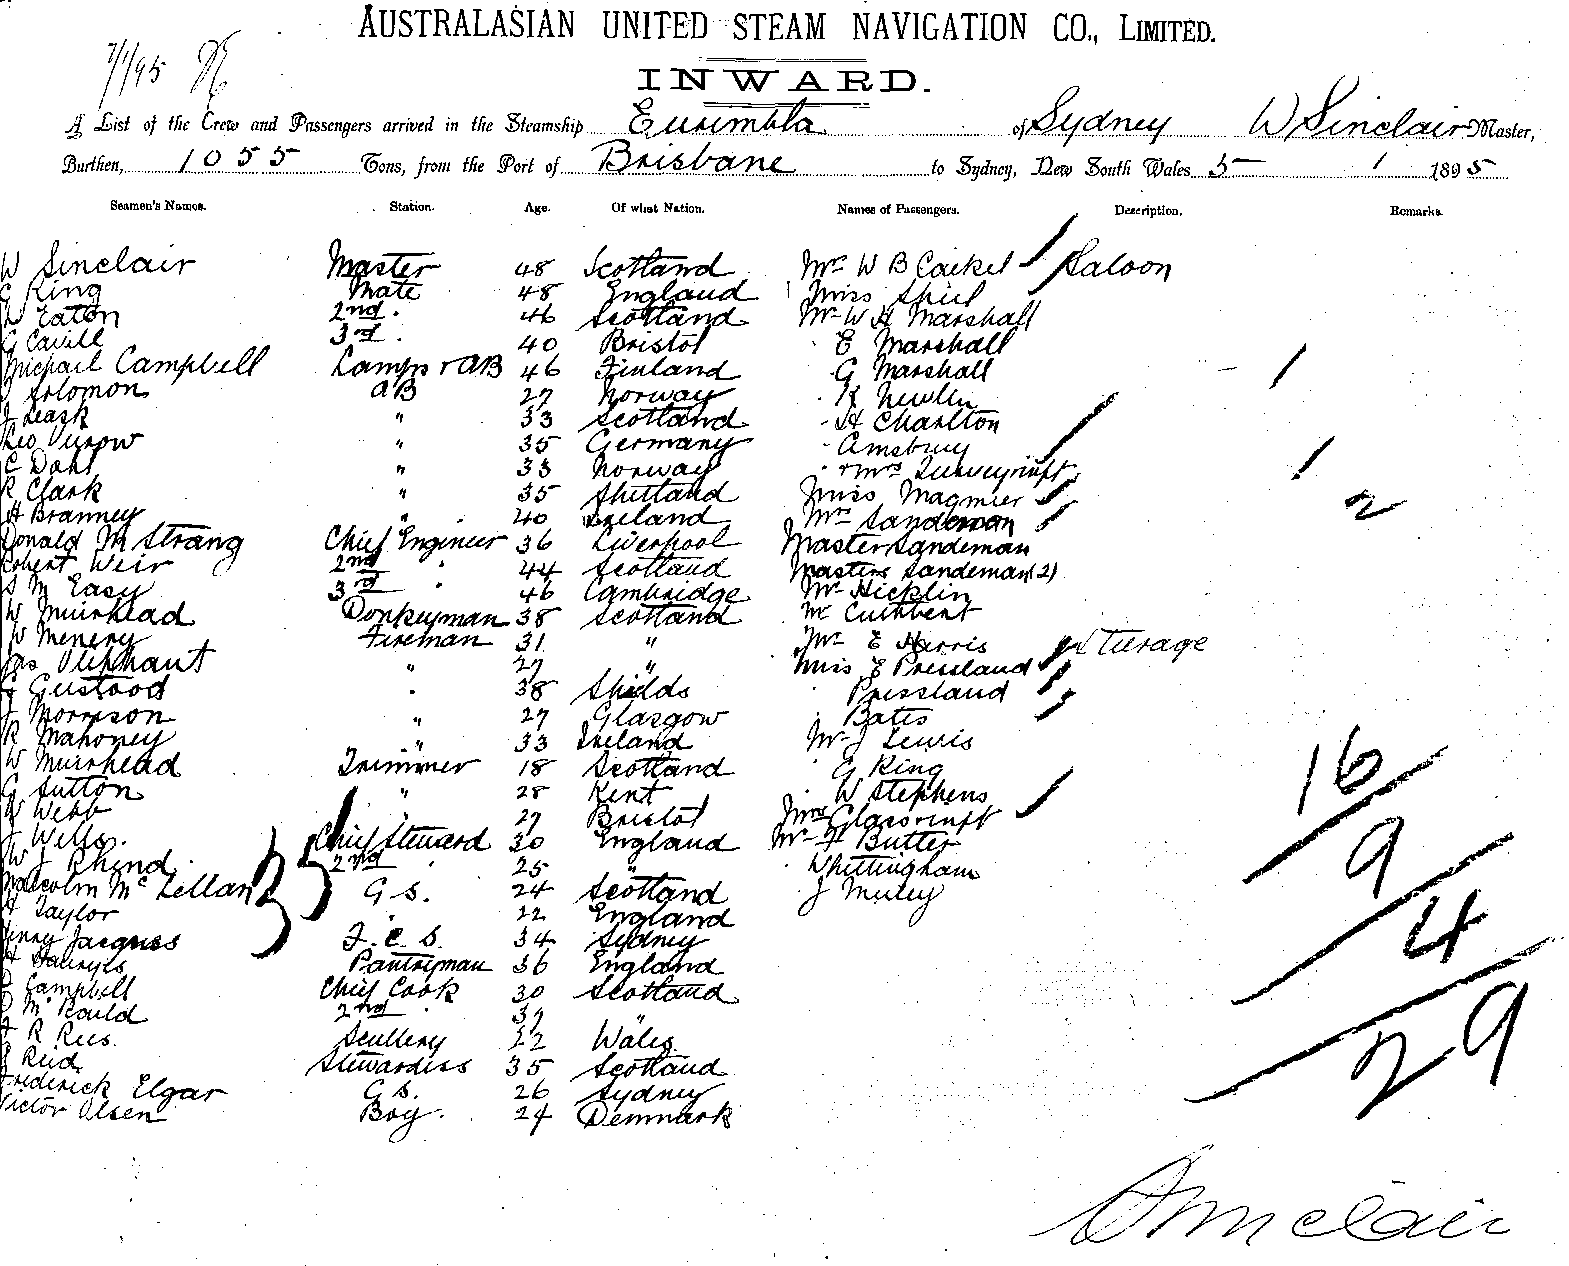 AUSTRALASIAN UNITED STEAM NAVIGATION CO., LIMITED.
7/1/95
INWARD.
A List of the Crew and Passengers arrived in the Steamship Eurimbla of Sydney W Sinclair Master,
Burthen, 1055 Tons, from the Port of Brisbane to Sydney, New South Wales 5 1 1895
Seamen's Names. Station. Age. Of what Nation. Names of Passengers. Description. Remarks.
W Sinclair Master 48 Scotland Mr W B Saloon
King Mate 48 England Miss
Eaton 2nd 46 Scotland Mr W H Marshall
G Cavill 3rd 40 Bristol E Marshall
Michael Campbell Lamps & AB 46 Finland G Marshall 1
Solomon AB 27 Norway Newlin
J Leask " 33 Scotland H Charlton
Geo " 35 Germany Amsbury
C Dahl " 33 Norway & Mrs 1
R Clark " 35 Shetland Miss Magmier 2
H Branney " 40 Ireland Mrs Sandeman
Donald M Strang Chief Engineer 36 Liverpool Master Sandeman
Robert Weir 2nd " 44 Scotland Masters Sandeman (2)
S M Easy 3rd 46 Cambridge Mr Hicklin
W Muirhead Donkeyman 38 Scotland Mr Cuthbert
W Menery Fireman 31 " Mr E Harris Steerage
Jas Oliphant " 27 " Miss E Pressland
J 38 Shields Pressland
J Morrison " 27 Glasgow Bates
R Mahoney " 33 Ireland Mr J Lewis
W Muirhead Trimmer 18 Scotland G King 16
G Sutton " 28 Kent W Stephens
Webb " 27 Bristol Mrs
J Wells Chief Steward 30 England Mr F Butler 9
W J Rhind 2nd 25 " Whittingham
Malcolm McLellan G S. 24 Scotland J
H Taylor 22 England 4
Henry Jacques F. C S. 34 Sydney
H Pantryman 36 England
Campbell Chief Cook 30 Scotland
2nd "
R Rees Scullery 22 Wales 29
Reid Stewardess 35 Scotland
Frederick Elgar G S. 26 Sydney
Victor Olsen Boy 24 Denmark
W Sinclair